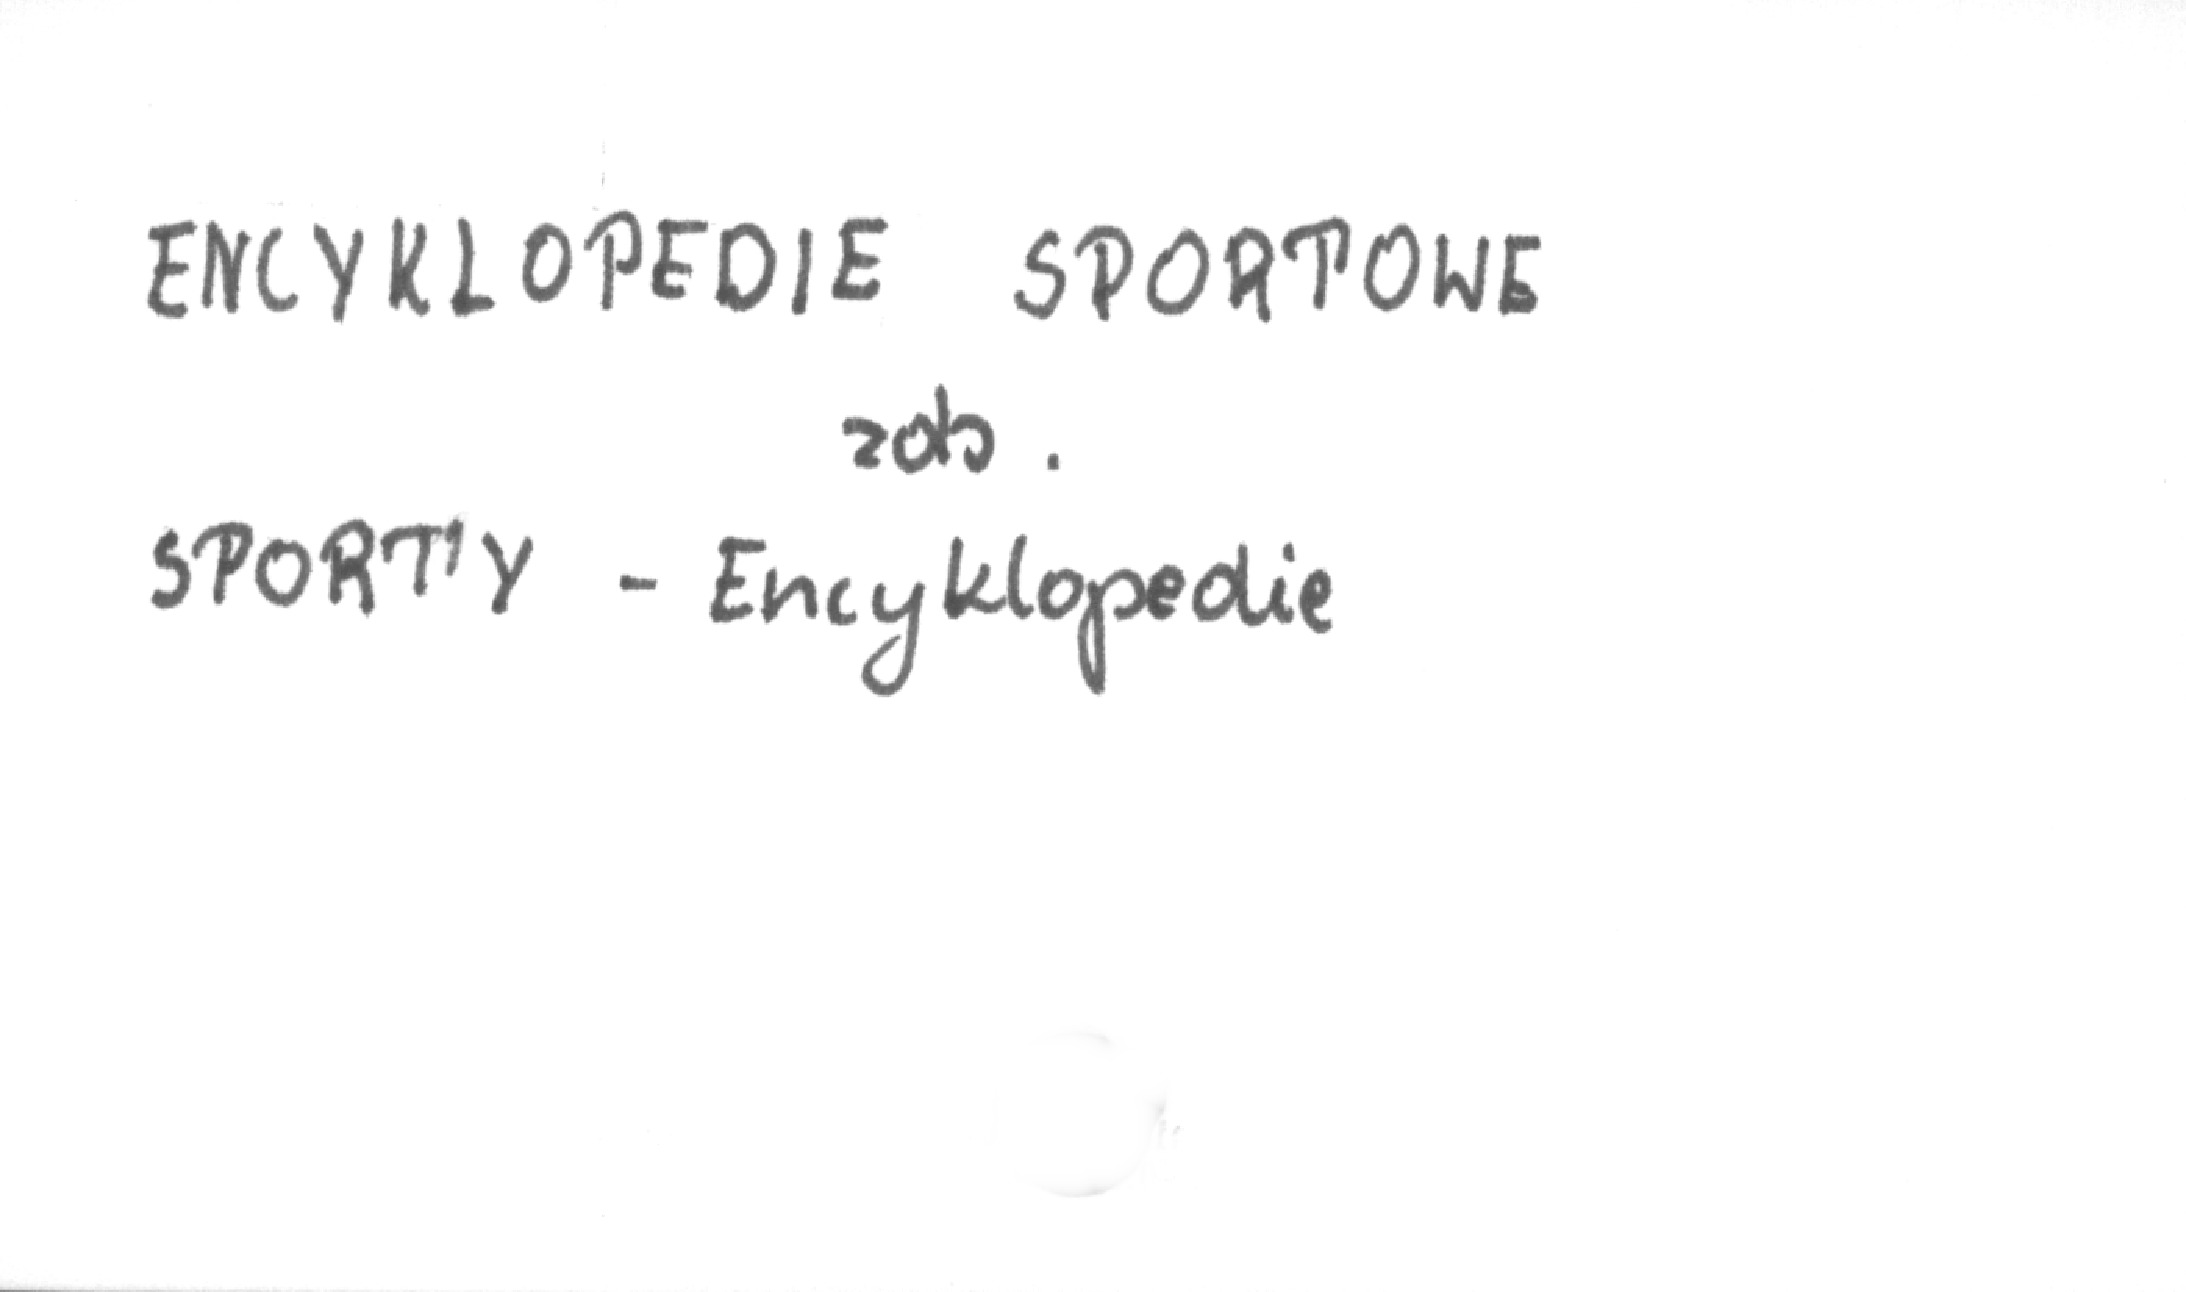 ENCYKLOPEDIE SPORTOWE
zob.
SPORTY - Encyklopedie